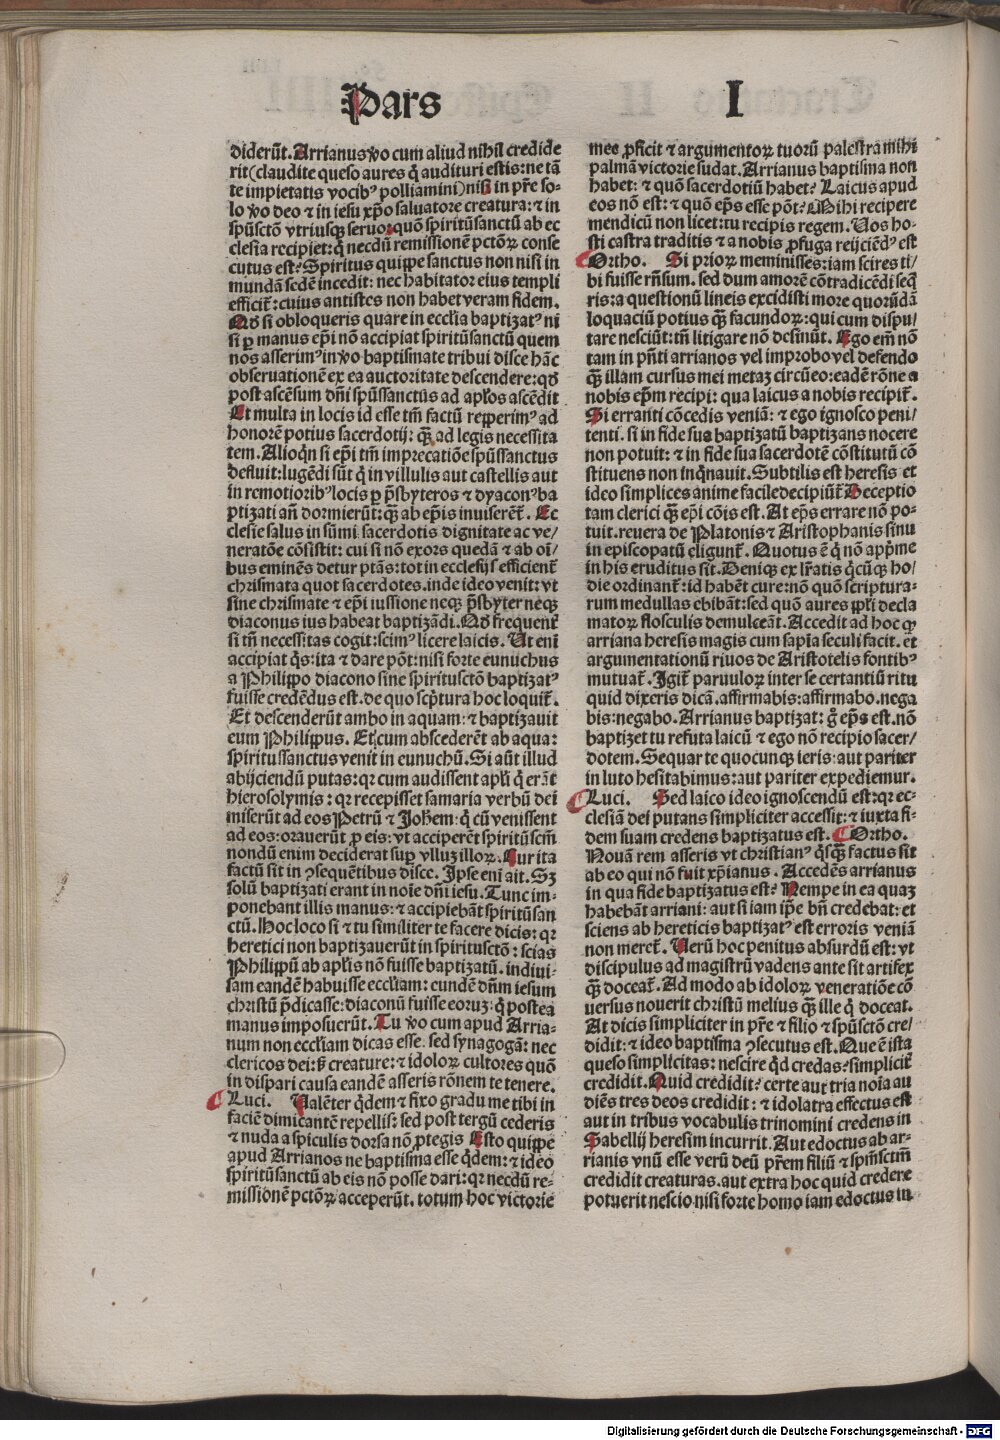 Pars I
diderūt. Arrianus v̄o cum aliud nihil credide
rit (claudite queso aures q̄ audituri estis: ne tā
te impietatis vocibꝰ polliamini) nisi in pr̄e so-
lo v̄o deo ⁊ in iesu xp̄o saluatore creatura: ⁊ in
sp̄usctō vtriusqꝫ seruo: quō spiritūsanctū ab ec
clesia recipiet: q̄ necdū remissionē pctōꝝ conse
cutus est? Spiritus quippe sanctus non nisi in
mundā sedē incedit: nec habitator eius templi
efficit᷑: cuius antistes non habet veram fidem.
Qd̄ si obloqueris quare in eccl̄ia baptizatꝰ ni
si ꝑ manus ep̄i nō accipiat spiritūsanctū quem
nos asserimꝰ in v̄o baptismate tribui disce hāc
obseruationē ex ea auctoritate descendere: qd̄
post ascēsum dn̄i sp̄ussanctus ad apl̄os ascēdit
Et multa in locis id esse tm̄ factū repperimꝰ ad
honorē potius sacerdotij: qꝫ̄ ad legis necessita
tem. Alioqn̄ si ep̄i tm̄ imprecatiōe sp̄ussanctus
defluit: lugēdi sūt q̄ in villulis aut castellis aut
in remotioribꝰ locis ꝑ p̄sbyteros ⁊ dyaconꝰ ba
ptizati an̄ dormierūt: qꝫ̄ ab ep̄is inuiserēt᷑. Ec
clesie salus in sūmi sacerdotis dignitate ac ve/
neratōe cōsistit: cui si nō exors quedā ⁊ ab oī/
bus eminēs detur ptās: tot in ecclesijs efficient᷑
chrismata quot sacerdotes. inde ideo venit: vt
sine chrismate ⁊ ep̄i iussione neqꝫ p̄sbyter neqꝫ
diaconus ius habeat baptizādi. Qd̄ frequent᷑
si tn̄ necessitas cogit: scimꝰ licere laicis. Ut eni
accipiat q̄s: ita ⁊ dare pōt: nisi forte eunuchus
a Philippo diacono sine spiritusctō baptizatꝰ
fuisse credēdus est. de quo sc̄ptura hoc loquit᷑.
Et descenderūt ambo in aquam: ⁊ baptizauit
eum Philippus. Et cum abscederēt ab aqua:
spiritussanctus venit in eunuchū. Si aūt illud
abijciendū putas: qꝛ cum audissent apl̄i q̄ erāt
hierosolymis: qꝛ recepisset samaria verbū dei
miserūt ad eos Petrū ⁊ Joh̄em: q̄ cū venissent
ad eos: orauerūt ꝓ eis: vt acciperēt spiritūsctm̄
nondū enim deciderat suꝑ vlluꝫ illoꝝ. Cur ita
factū sit in ꝯsequētibus disce. Ipse eni ait. Sꝫ
solū baptizati erant in noīe dn̄i iesu. Tunc im-
ponebant illis manus: ⁊ accipiebāt spiritūsan
ctū. Hoc loco si ⁊ tu similiter te facere dicis: qꝛ
heretici non baptizauerūt in spiritusctō: scias
Philippū ab apl̄is nō fuisse baptizatū. indiui-
sam eandē habuisse eccl̄iam: eundē dn̄m iesum
christū p̄dicasse: diaconū fuisse eoruꝫ: q̄ postea
manus imposuerūt. Tu v̄o cum apud Arria-
num non eccl̄iam dicas esse. sed synagogā: nec
clericos dei: sꝫ creature: ⁊ idoloꝝ cultores quō
in dispari causa eandē asseris rōnem te tenere.
Luci. Valēter q̄dem ⁊ fixo gradu me tibi in
faciē dimicantē repellis: sed post tergū cederis
⁊ nuda a spiculis dorsa nō ꝓtegis Esto quippe
apud Arrianos ne baptisma esse q̄dem: ⁊ ideo
spiritūsanctū ab eis nō posse dari: qꝛ necdū re-
missionē pctōꝝ acceperūt. totum hoc victorie
mee ꝓficit ⁊ argumentoꝝ tuorū palestra mihi
palmā victorie sudat. Arrianus baptisma non
habet: ⁊ quō sacerdotiū habet? Laicus apud
eos nō est: ⁊ quō ep̄s esse pōt? Mihi recipere
mendicū non licet: tu recipis regem. Uos ho-
sti castra traditis ⁊ a nobis ꝓfuga reijciēdꝰ est
Ortho. Si prioꝝ meminisses: iam scires ti/
bi fuisse rn̄sum. sed dum amorē cōtradicēdi seq̄
ris: a questionū lineis excidisti more quorūdā
loquaciū potius qꝫ̄ facundoꝝ: qui cum dispu/
tare nesciūt: tn̄ litigare nō desinūt. Ego em̄ nō
tam in pn̄ti arrianos vel improbo vel defendo
qꝫ̄ illam cursus mei metaꝫ circūeo: eadē rōne a
nobis ep̄m recipi: qua laicus a nobis recipit᷑.
Si erranti cōcedis veniā: ⁊ ego ignosco peni/
tenti. si in fide sua baptizatū baptizans nocere
non potuit: ⁊ in fide sua sacerdotē cōstitutū cō
stituens non inq̄nauit. Subtilis est heresis et
ideo simplices anime facile decipiūt᷑ Deceptio
tam clerici qꝫ̄ ep̄i cōis est. At ep̄s errare nō po-
tuit. reuera de Platonis ⁊ Aristophanis sinu
in episcopatū eligunt᷑. Quotus ē q̄ nō app̄me
in his eruditus sit. Deniqꝫ ex lr̄atis q̄cūqꝫ ho/
die ordinant᷑: id habēt cure: nō quō scriptura-
rum medullas ebibāt: sed quō aures pp̄li decla
matoꝝ flosculis demulceāt. Accedit ad hoc qꝙ
arriana heresis magis cum sapīa seculi facit. et
argumentationū riuos de Aristotelis fontibꝰ
mutuat᷑. Igit᷑ paruuloꝝ inter se certantiū ritu
quid dixeris dicā. affirmabis: affirmabo. nega
bis: negabo. Arrianus baptizat: g̊ ep̄s est. nō
baptizet tu refuta laicū ⁊ ego nō recipio sacer/
dotem. Sequar te quocunqꝫ ieris: aut pariter
in luto hesitabimus: aut pariter expediemur.
Luci. Sed laico ideo ignoscendū est: qꝛ ec-
clesiā dei putans simpliciter accessit: ⁊ iuxta fi-
dem suam credens baptizatus est. Ortho.
Nouā rem asseris vt christianꝰ q̄sqꝫ̄ factus sit
ab eo qui nō fuit xp̄ianus. Accedēs arrianus
in qua fide baptizatus est? Nempe in ea quaꝫ
habebāt arriani: aut si iam ip̄e bn̄ credebat: et
sciens ab hereticis baptizatꝰ est erroris veniā
non meret᷑. Verū hoc penitus absurdū est: vt
discipulus ad magistrū vadens ante sit artifex
qꝫ̄ doceat᷑. Ad modo ab idoloꝝ veneratiōe cō
uersus nouerit christū melius qꝫ̄ ille q̄ doceat.
At dicis simpliciter in pr̄e ⁊ filio ⁊ sp̄usctō cre/
didit: ⁊ ideo baptisma ꝯsecutus est. Que ē ista
queso simplicitas: nescire qd̄ credas? simplicit᷑
credidit. Quid credidit? certe aut tria noīa au
diēs tres deos credidit: ⁊ idolatra effectus est
aut in tribus vocabulis trinomini credens in
Sabellij heresim incurrit. Aut edoctus ab ar-
rianis vnū esse verū deū pr̄em filiū ⁊ spm̄sctm̄
credidit creaturas. aut extra hoc quid credere
potuerit nescio nisi forte homo iam edoctus in
Digitalisierung gefördert durch die Deutsche Forschungsgemeinschaft - DFG